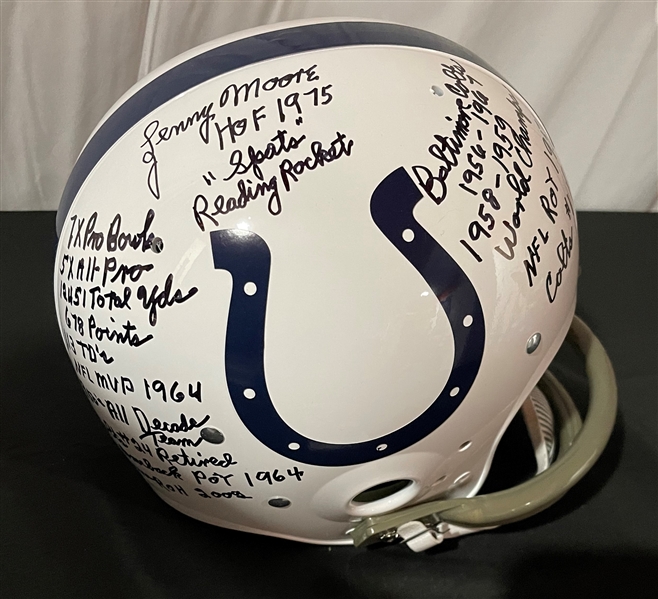 Lenny Moore
HOF 1975
"Spats"
Reading Rocket
7X Pro Bowl
5X All-Pro
12,451 Total Yds
678 Points
TD's
NFL MVP 1964
All Decade
Team
24 Retired
Comeback PoY 1964
2002
Baltimore Colts
1956-1967
1958-1959
World Champs
NFL ROY
Colts